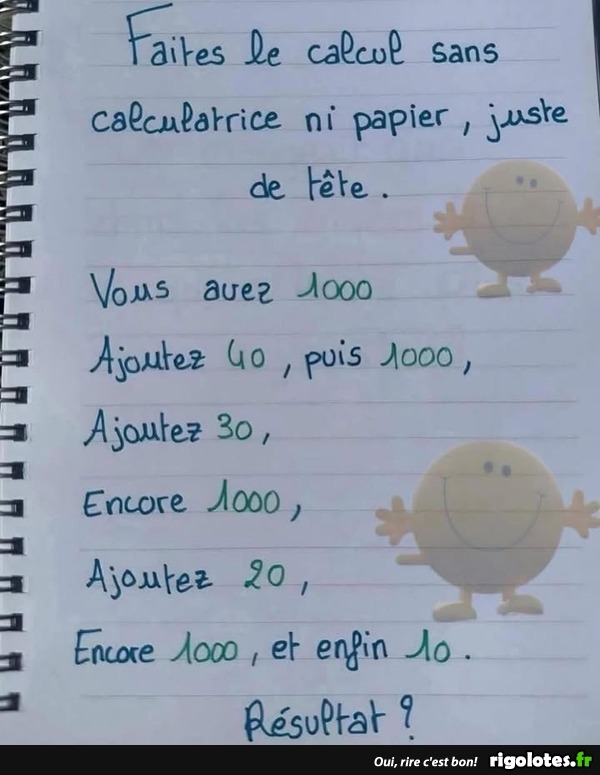 Faites le calcul sans
calculatrice ni papier, juste
de tête.
Vous avez 1000
Ajoutez 40, puis 1000,
Ajoutez 30,
Encore 1000,
Ajoutez 20,
Encore 1000, et enfin 10.
Résultat ?
Oui, rire c'est bon! rigolotes.fr